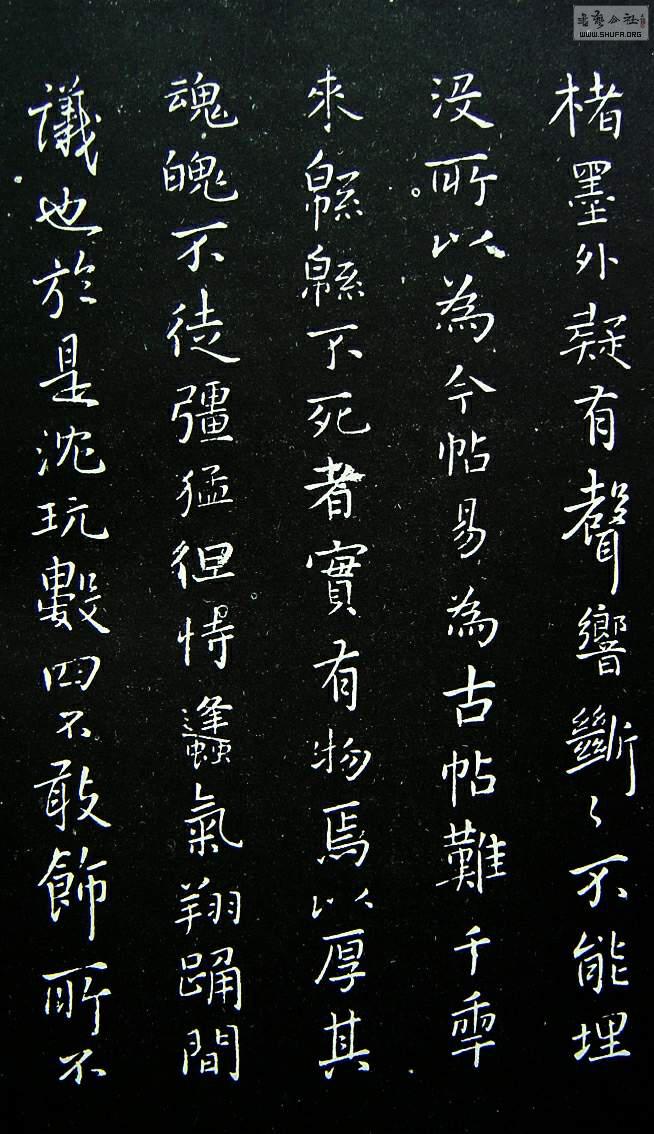 楮墨外疑有聲響斷〻不能埋
没所以為今帖易為古帖難千年
來緜緜不死者實有物焉以厚其
魂魄不徒彊猛徂恃蠭氣翔踊間
議也於是沈玩數四不敢飾所不
WWW.SHUFA.ORG